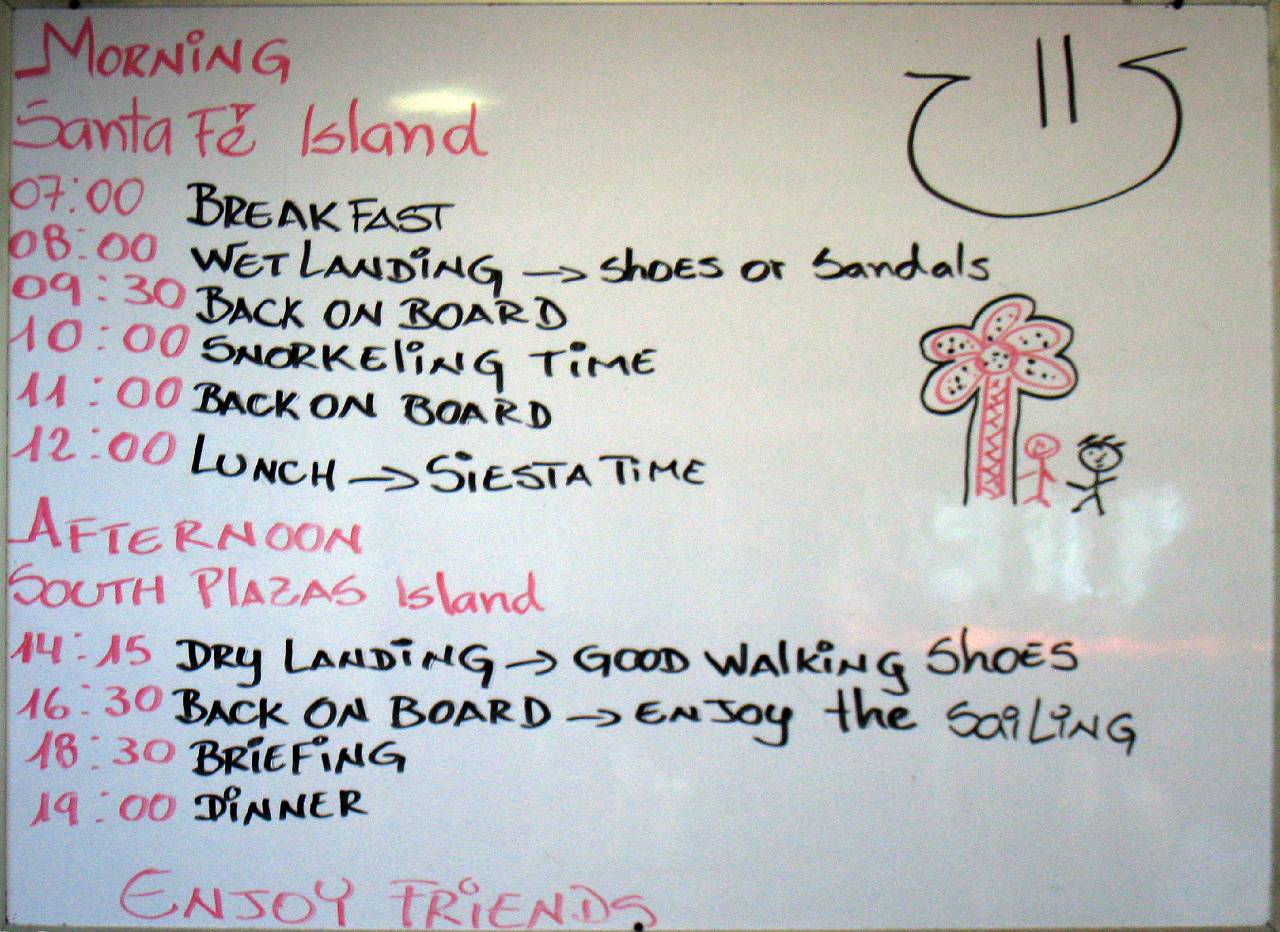 MORNING
Santa Fé Island
07:00 BREAKFAST
08:00 WET LANDING → SHOES or Sandals
09:30 BACK ON BOARD
10:00 SNORKEling TIME
11:00 BACK ON BOARD
12:00 LUNCH → SIESTA TIME
AFTERNOON
SOUTH PlAZAS Island
14:15 DRy LANDING → GOOD WalkING ShoES
16:30 BACK ON BOARD → ENJOy the SaiLING
18:30 BRIEFING
19:00 DINNER
ENJOY FRIENDS